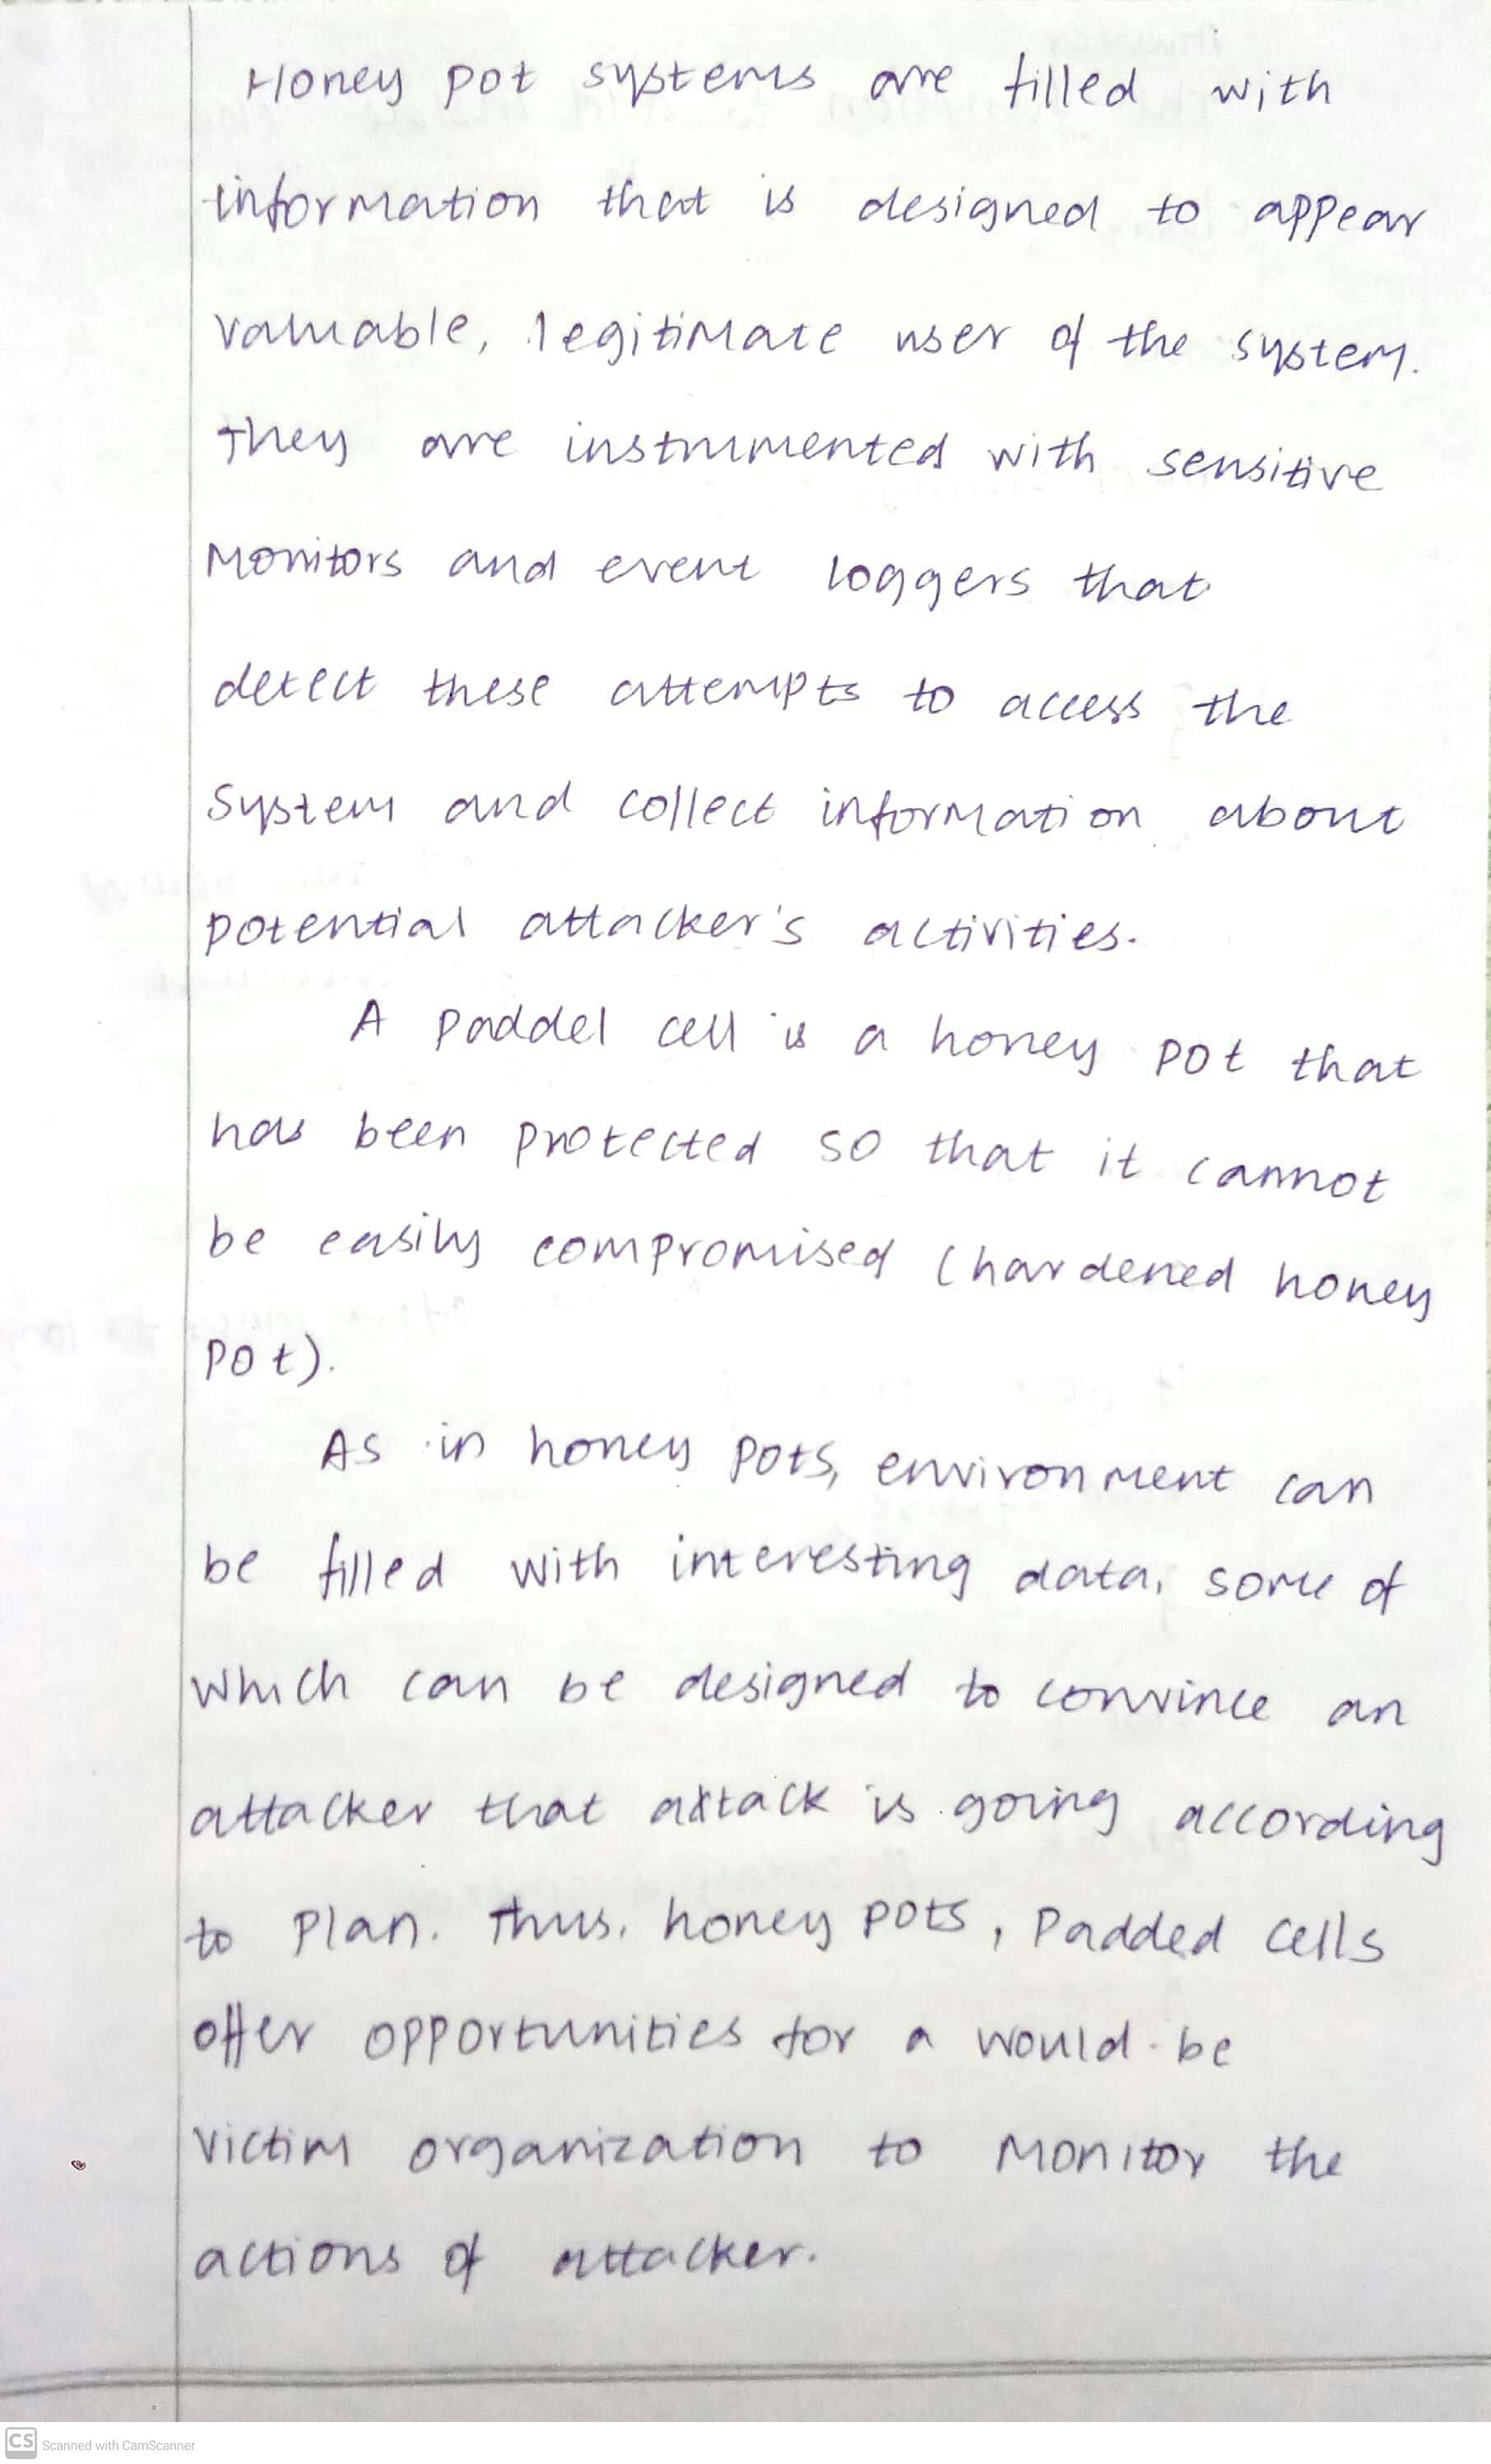 Honey pot systems are filled with
information that is designed to appear
valuable, legitimate user of the system.
They are instrumented with sensitive
Monitors and event loggers that
detect these attempts to access the
System and collect information about
potential attacker's activities.
A Paddel cell is a honey pot that
has been protected so that it cannot
be easily compromised (hardened honey
pot).
As in honey pots, environment can
be filled with interesting data, some of
which can be designed to convince an
attacker that attack is going according
to Plan. Thus, honey pots, Padded cells
offer opportunities for a would-be
victim organization to monitor the
actions of attacker.
CS Scanned with CamScanner